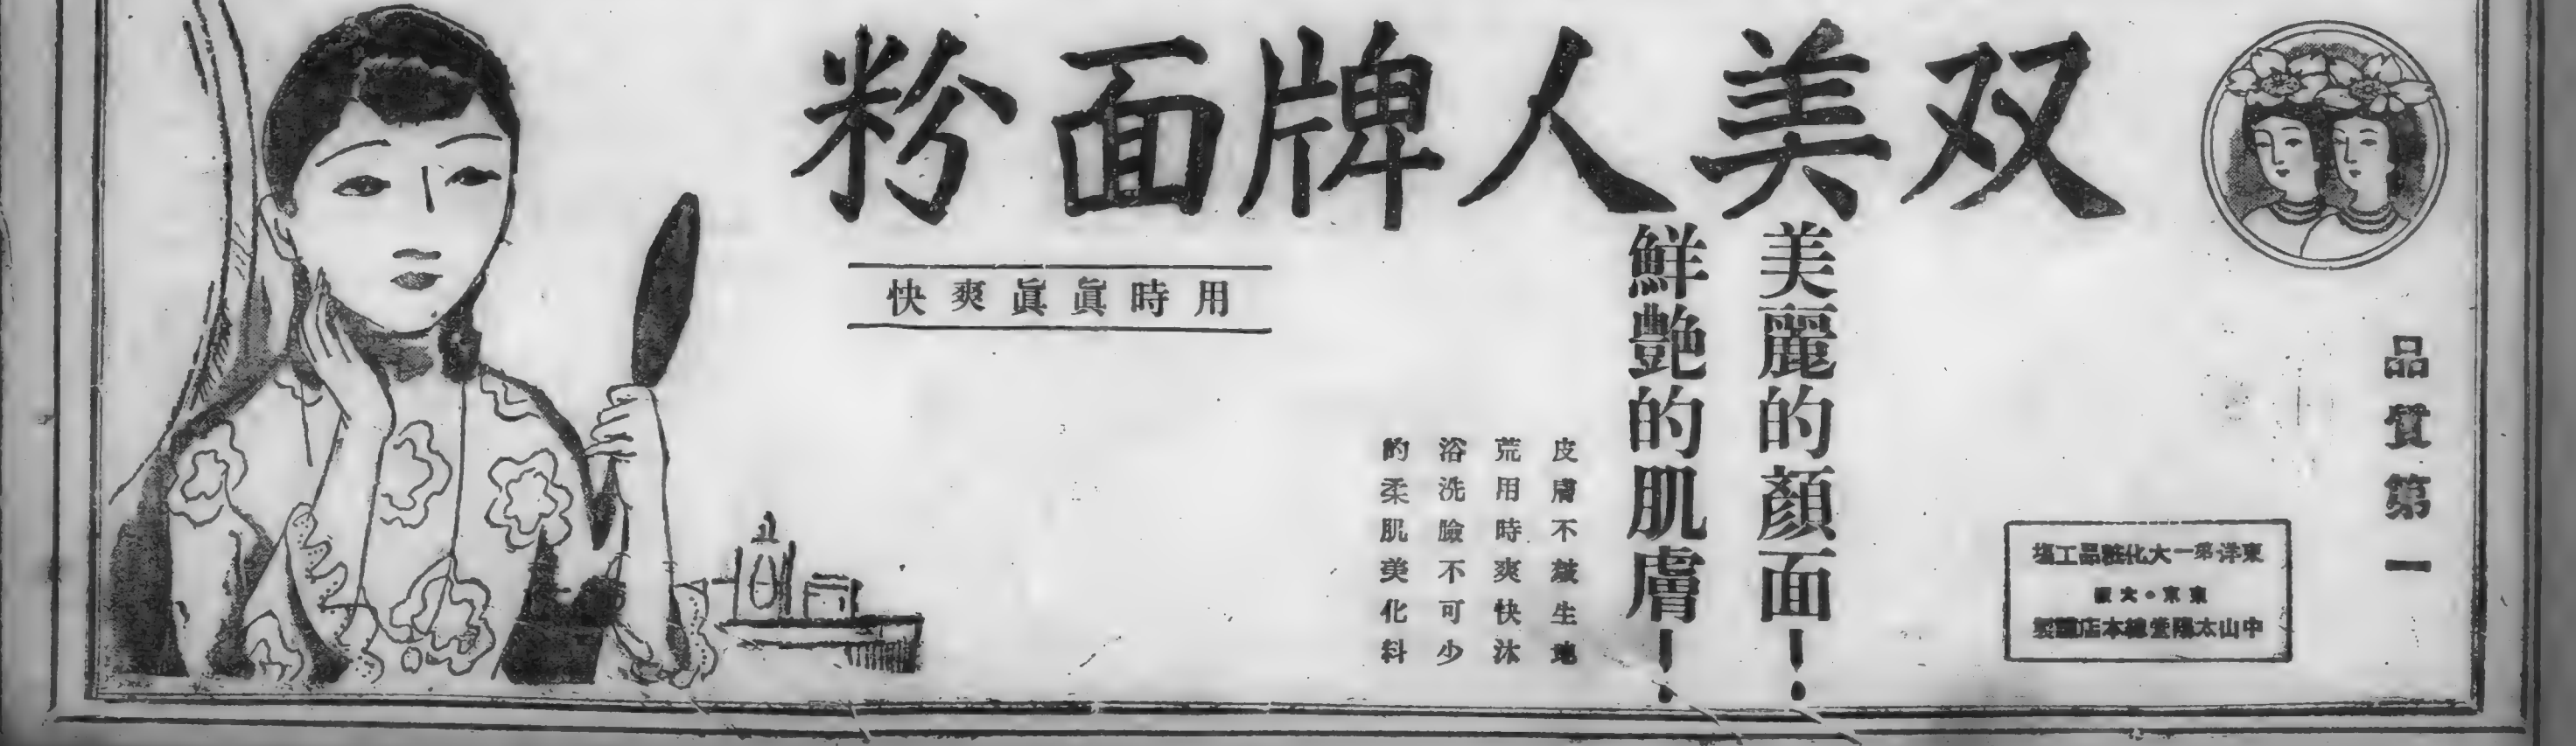 双美人牌面粉
品質第一
美麗的顏面！
鮮艷的肌膚！
用時眞眞爽快
皮膚不皺生地
荒用時爽快沐
浴洗臉不可少
的柔肌美化料
東洋第一大化粧品工場
東京・大阪
中山太陽堂總本店謹製